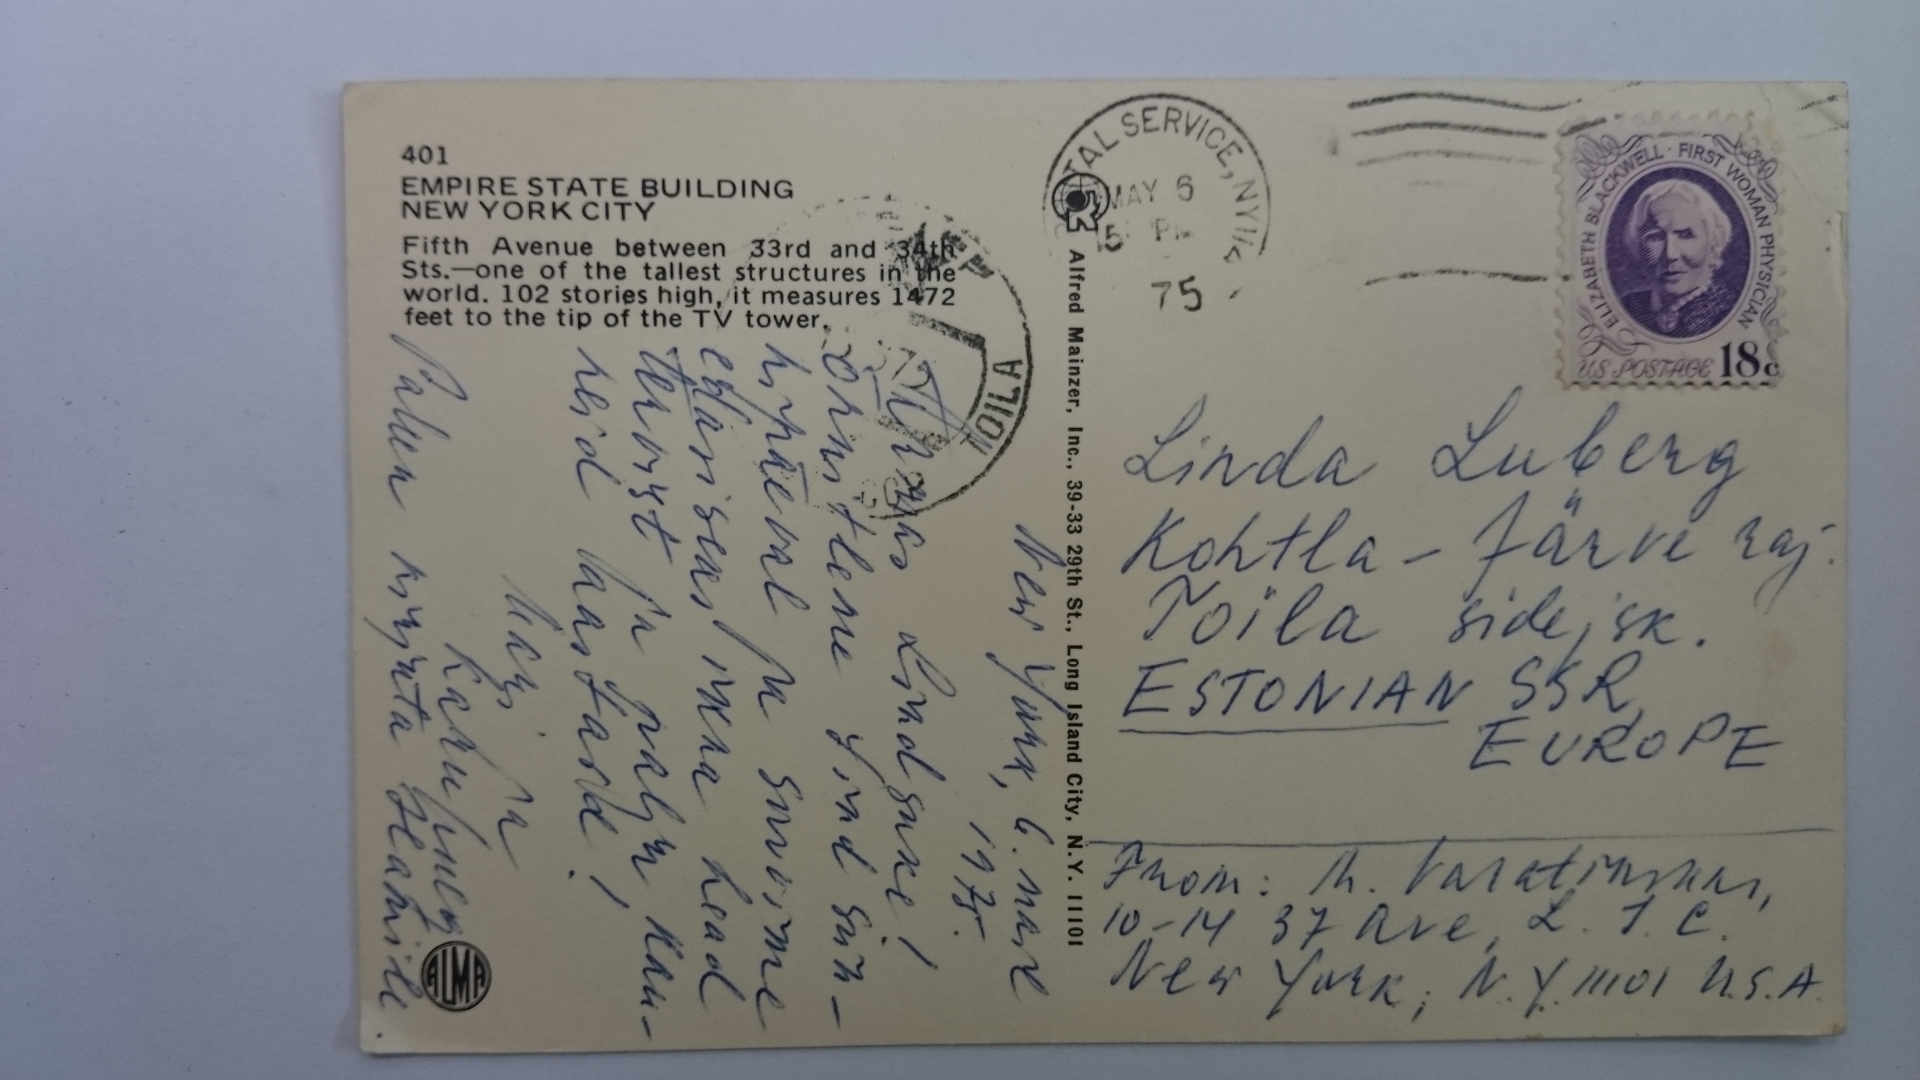 401
EMPIRE STATE BUILDING
NEW YORK CITY
Fifth Avenue between 33rd and 34th
Sts.—one of the tallest structures in the
world. 102 stories high, it measures 1472
feet to the tip of the TV tower.
New York, 6. mail
1975.
Armas Lindsuke!
Õnnitleme Sind sün-
nipäeval ja soovime
edaspidiseks ikka head
tervist ja palju, kau-
neid laastaid!
ja
Palun kirjuta
TAL SERVICE, NY
MAY 6
PM
75
TOILA
Alfred Mainzer, Inc., 39-33 29th St., Long Island City, N.Y. 11101
ALMA
ELIZABETH BLACKWELL · FIRST WOMAN PHYSICIAN
US POSTAGE 18c
Linda Luberg
Kohtla-Järve raj.
Toila sidejsk.
ESTONIAN SSR
EUROPE
From:
10-14 37 Ave, L. I. C.
New York, N.Y. 11101 U.S.A.